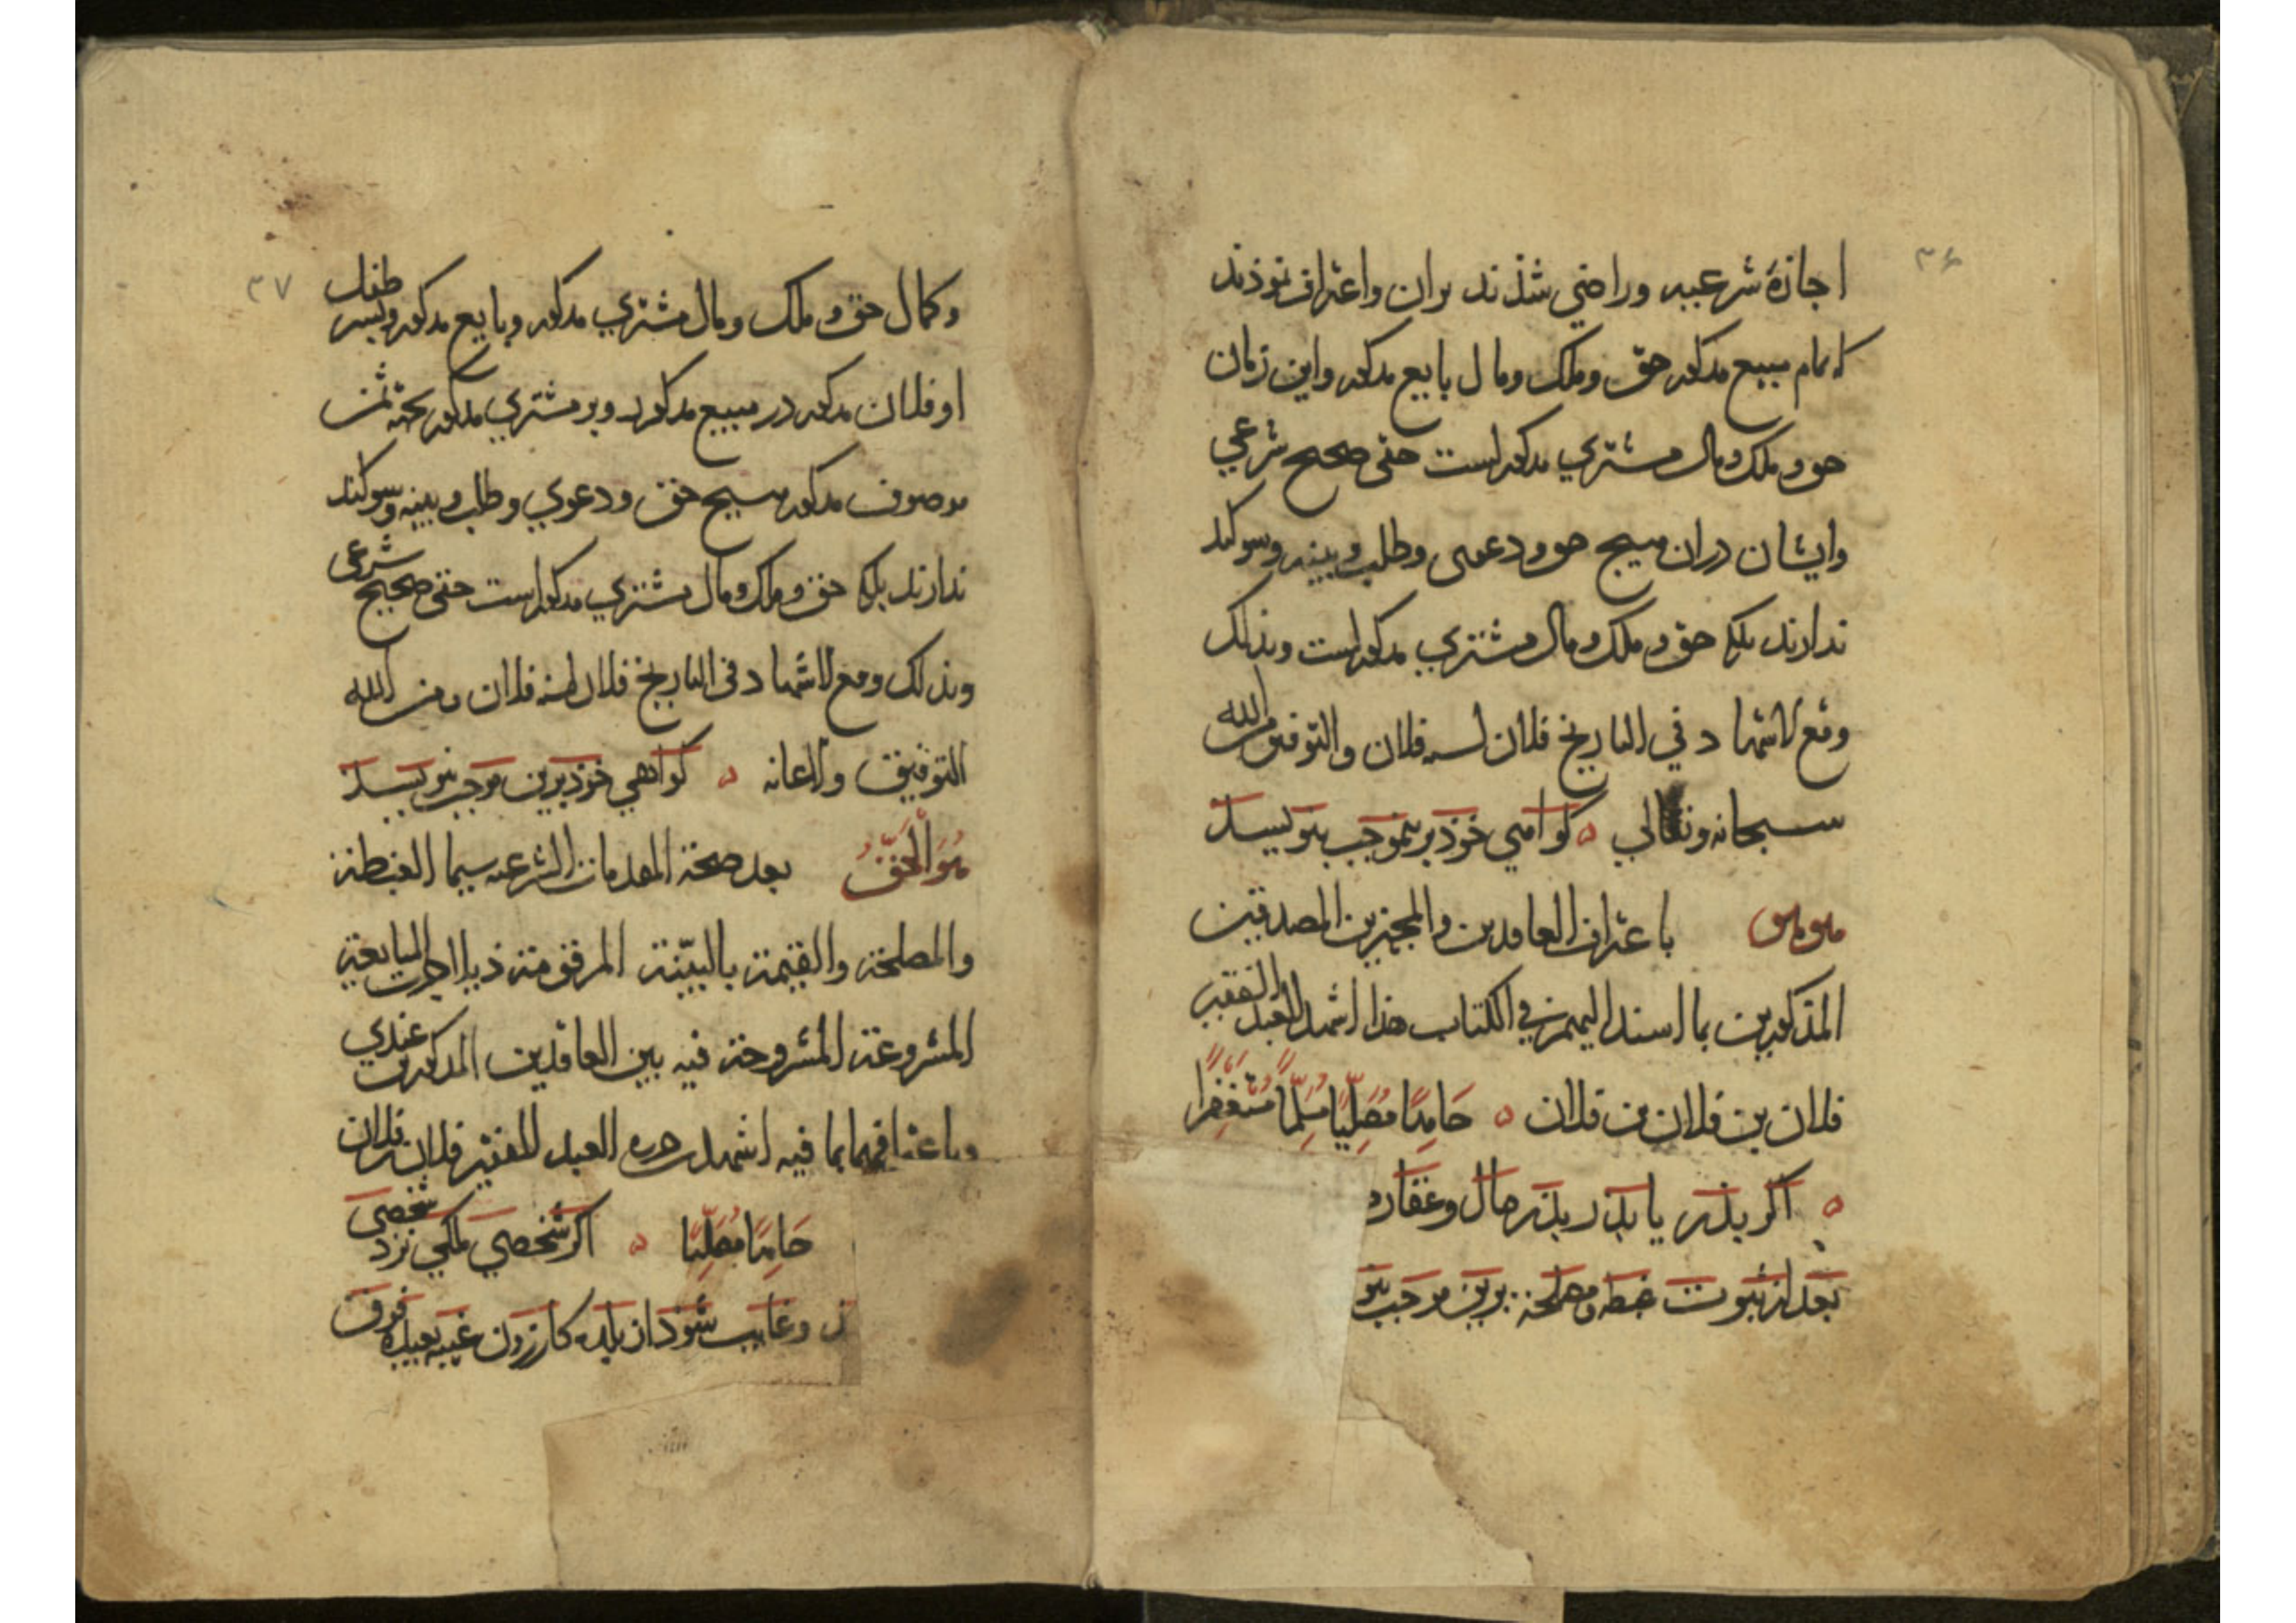 ۳۶
اجازهٔ شرعیه وراضي شذند بران واعتراف نموذند
که تمام مبیع مذکور حق وملک ومال بایع مذکور واین زمان
حق وملک ومال مشتري مذکور است حقي صحیح شرعي
وایشان دران هیچ حق ودعوی وطلب وبینه وسوکند
ندارند بلکه حق وملک ومال مشتري مذکور است وبذلک
وقع الاشهاد في التاریخ فلان لسنه فلان والتوفیق من الله
سبحانه وتعالي ه کواهي خوذ برینموجب بنویسند
باعتراف العاقدین والمجیزین المصدقین
المذکورین بما اسند الیهم في الکتاب هذا اشهد العبد الفقیر
فلان بن فلان بن فلان ه حَامِدًا مُصَلِّیًا مُسَلِّمًا مُسْتَغْفِرًا
ه اکر پذر یا پدر پذر مال وعقار
بعد از ثبوت غبطه ومصلحة برین موجب بنو
۳۷
وکمال حق وملک ومال مشتري مذکور وبایع مذکور وپسر طفل
او فلان مذکور در مبیع مذکور وبر مشتري مذکور بجهة ثمن
موصوف مذکور هیچ حق ودعوي وطلب وبینه وسوکند
ندارند بلکه حق وملک ومال مشتري مذکور است حقي صحیح شرعی
وبذلک وقع الاشهاد في التاریخ فلان لسنه فلان ومن الله
التوفیق والاعانه ه کواهي خوذ برین موجب بنویسند
هُوَ الْحَقُّ بعد صحة المقدمات الشرعیه سیما الغبطة
والمصلحة والقیمة بالبینة المرقومة ذیلا جرت المبایعة
المشروعة المشروحة فیه بین العاقدین المذکورین عندي
وباعترافهما بما فیه اشهد حرره العبد الفقیر فلان بن فلان
حَامِدًا مُصَلِّیًا ه اکر شخصي ملکي نزد شخصي
وغایب شوذ از بلده کازرون غیبه بعیده فوق